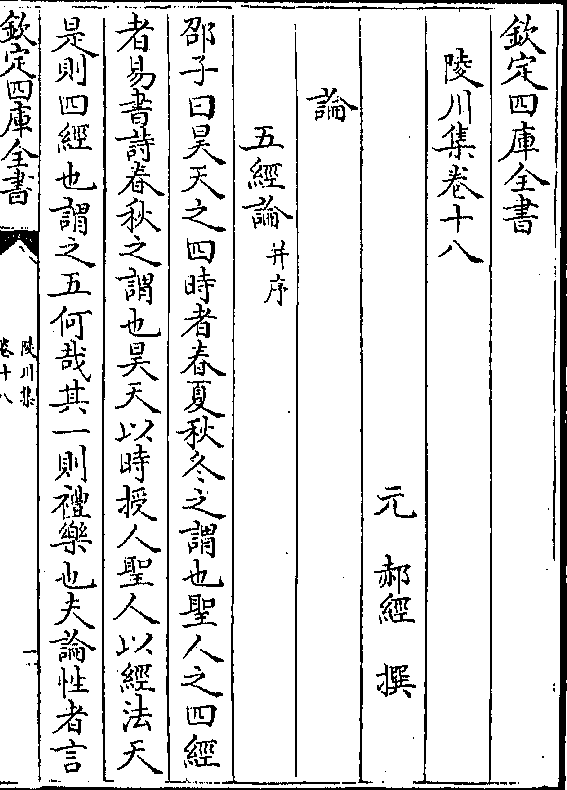 欽定四庫全書
陵川集卷十八
元　郝經　撰
論
五經論并序
邵子曰昊天之四時者春夏秋冬之謂也聖人之四經
者易書詩春秋之謂也昊天以時授人聖人以經法天
是則四經也謂之五何哉其一則禮樂也夫論性者言
欽定四庫全書
陵川集
卷十八
一